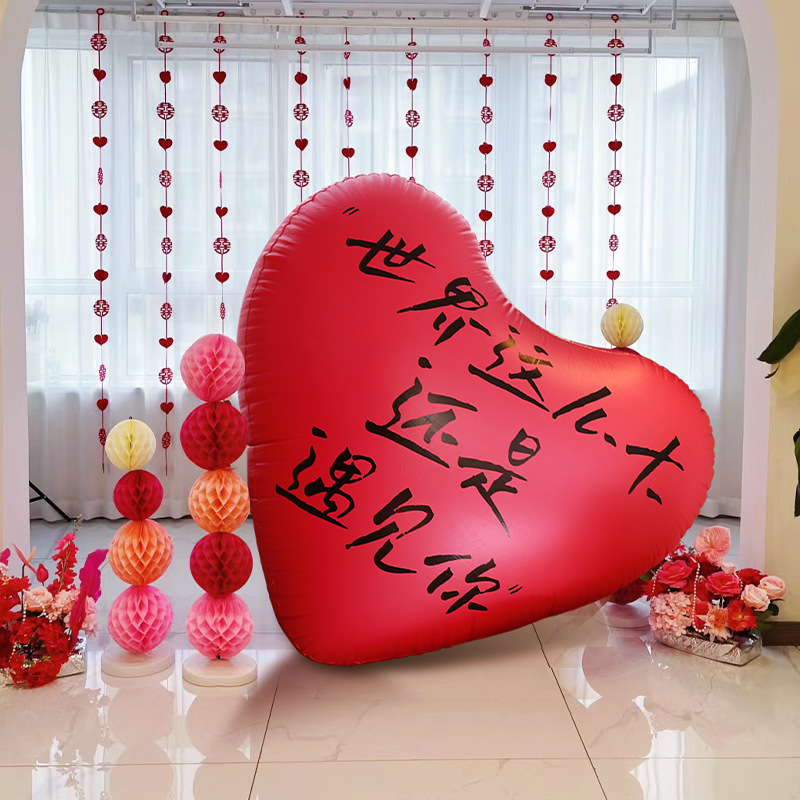 "世界这么大
还是
遇见你"